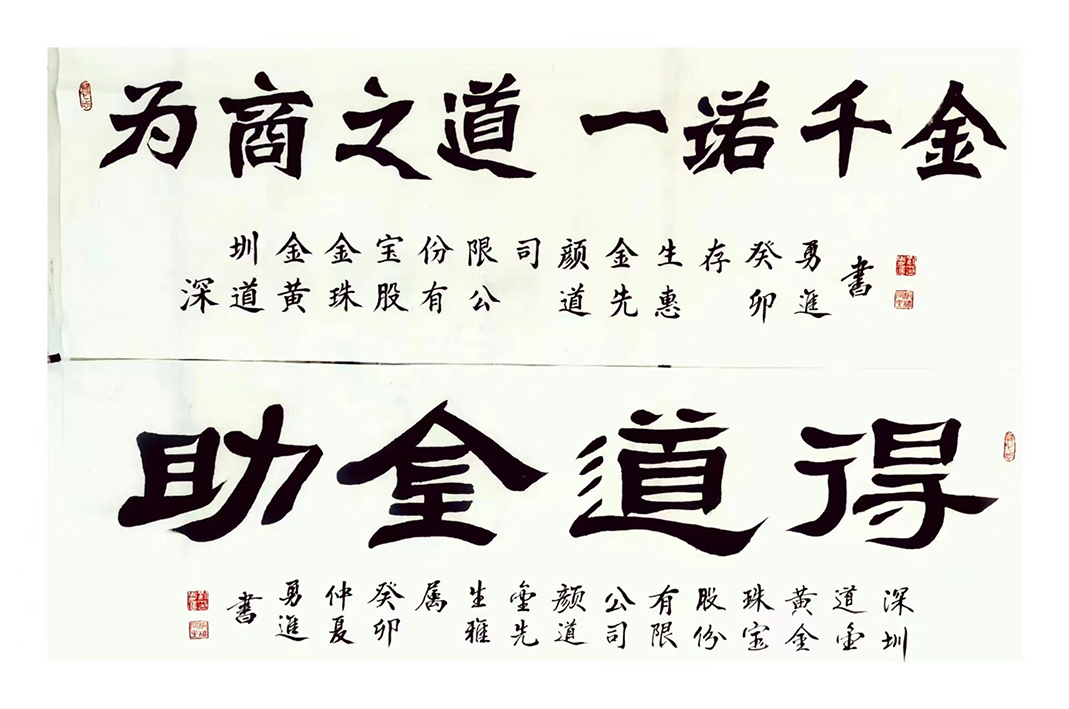 为商之道 一诺千金
深圳道金黄金珠宝股份有限公司颜道金先生惠存癸卯勇進書
得道金助
深圳道金黄金珠宝股份有限公司颜道金先生雅属癸卯仲夏勇進書